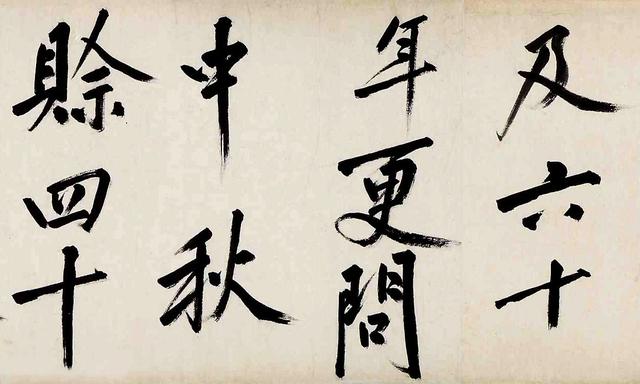 及六十
年更問
中秋
賖四十